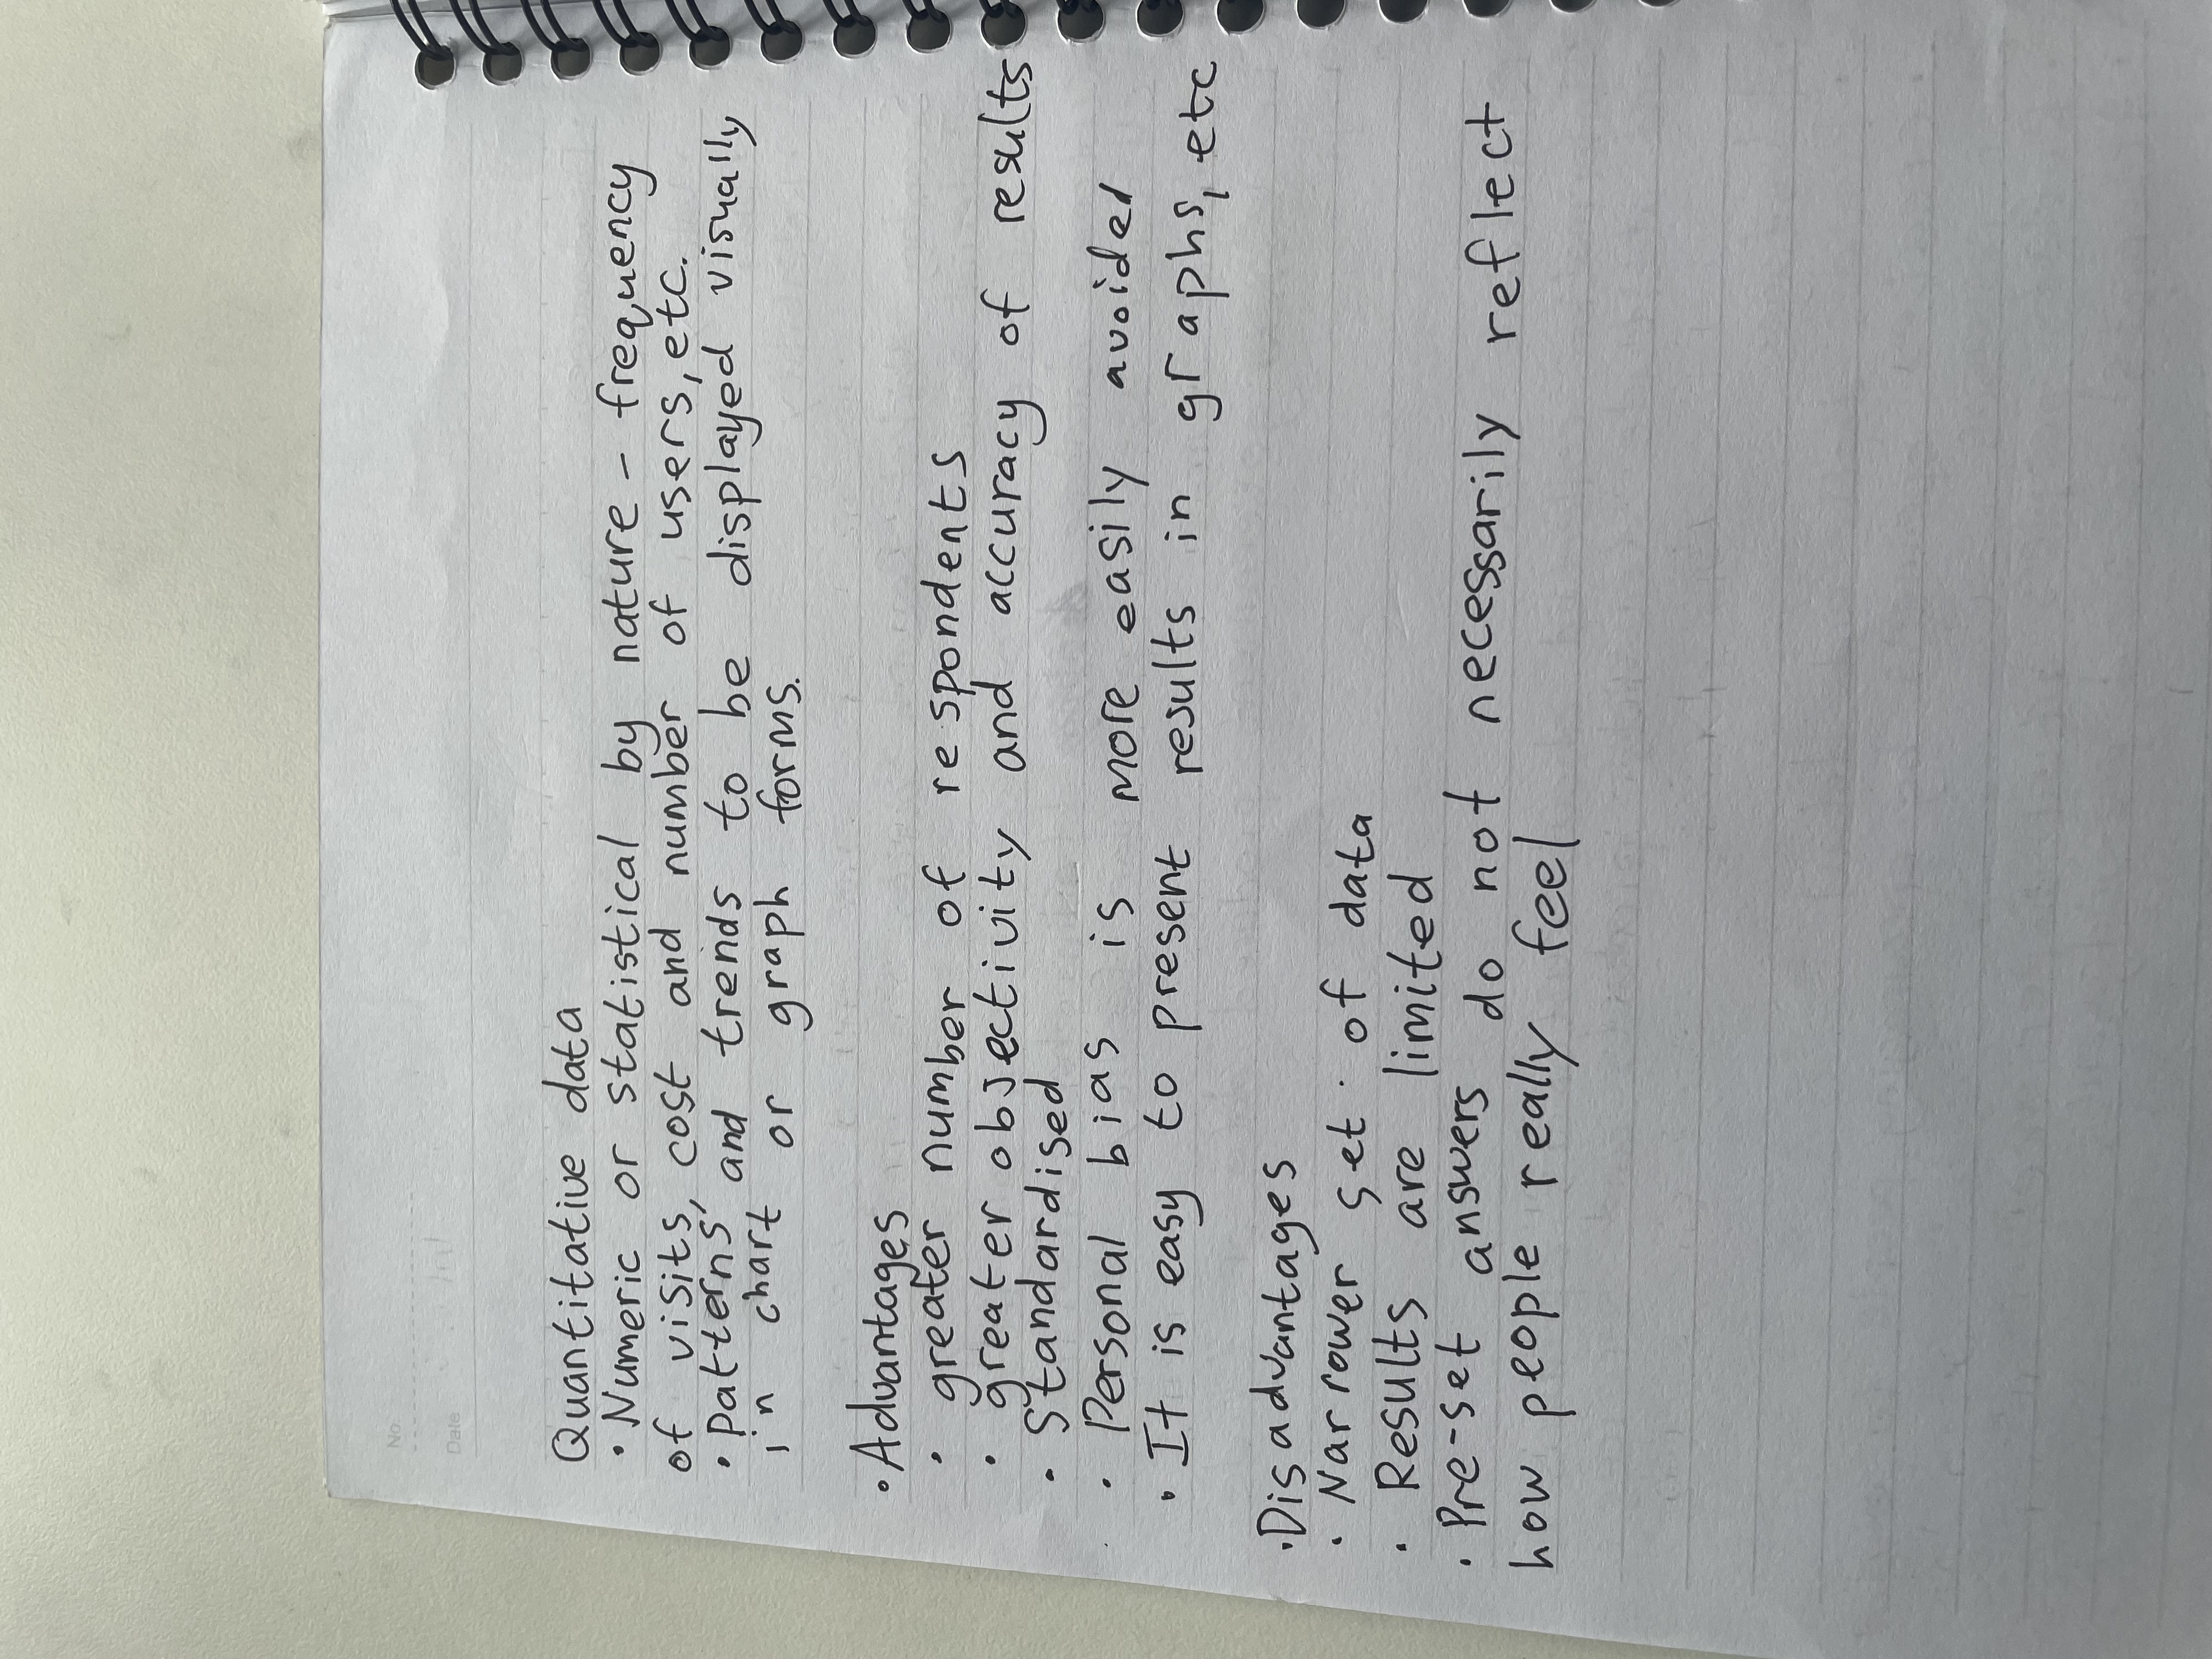 No
Date
Quantitative data
• Numeric or statistical by nature - frequency
of visits, cost and number of users, etc.
• patterns, and trends to be displayed visually
in chart or graph forms.
• Advantages
• greater number of respondents
• greater objectivity and accuracy of results
• Standardised
• Personal bias is more easily avoided
• It is easy to present results in graphs, etc
• Disadvantages
• Narrower set of data
• Results are limited
• Pre-set answers do not necessarily reflect
how people really feel